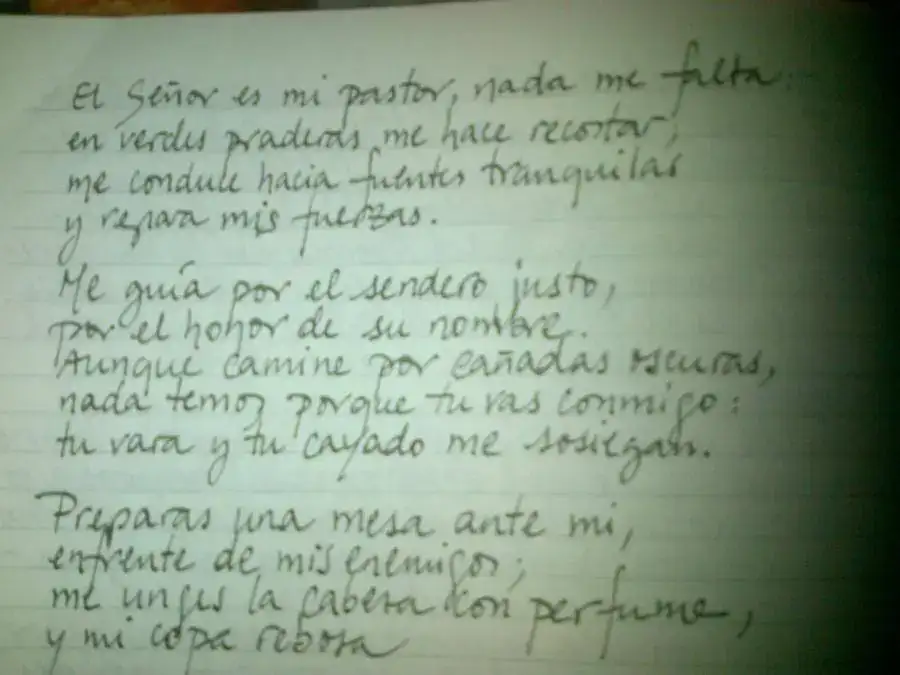 El Señor es mi pastor, nada me falta:
en verdes praderas me hace recostar;
me conduce hacia fuentes tranquilas
y repara mis fuerzas.
Me guía por el sendero justo,
por el honor de su nombre.
Aunque camine por cañadas oscuras,
nada temo, porque tu vas conmigo:
tu vara y tu cayado me sosiegan.
Preparas una mesa ante mi,
enfrente de mis enemigos;
me unges la cabeza con perfume,
y mi copa rebosa